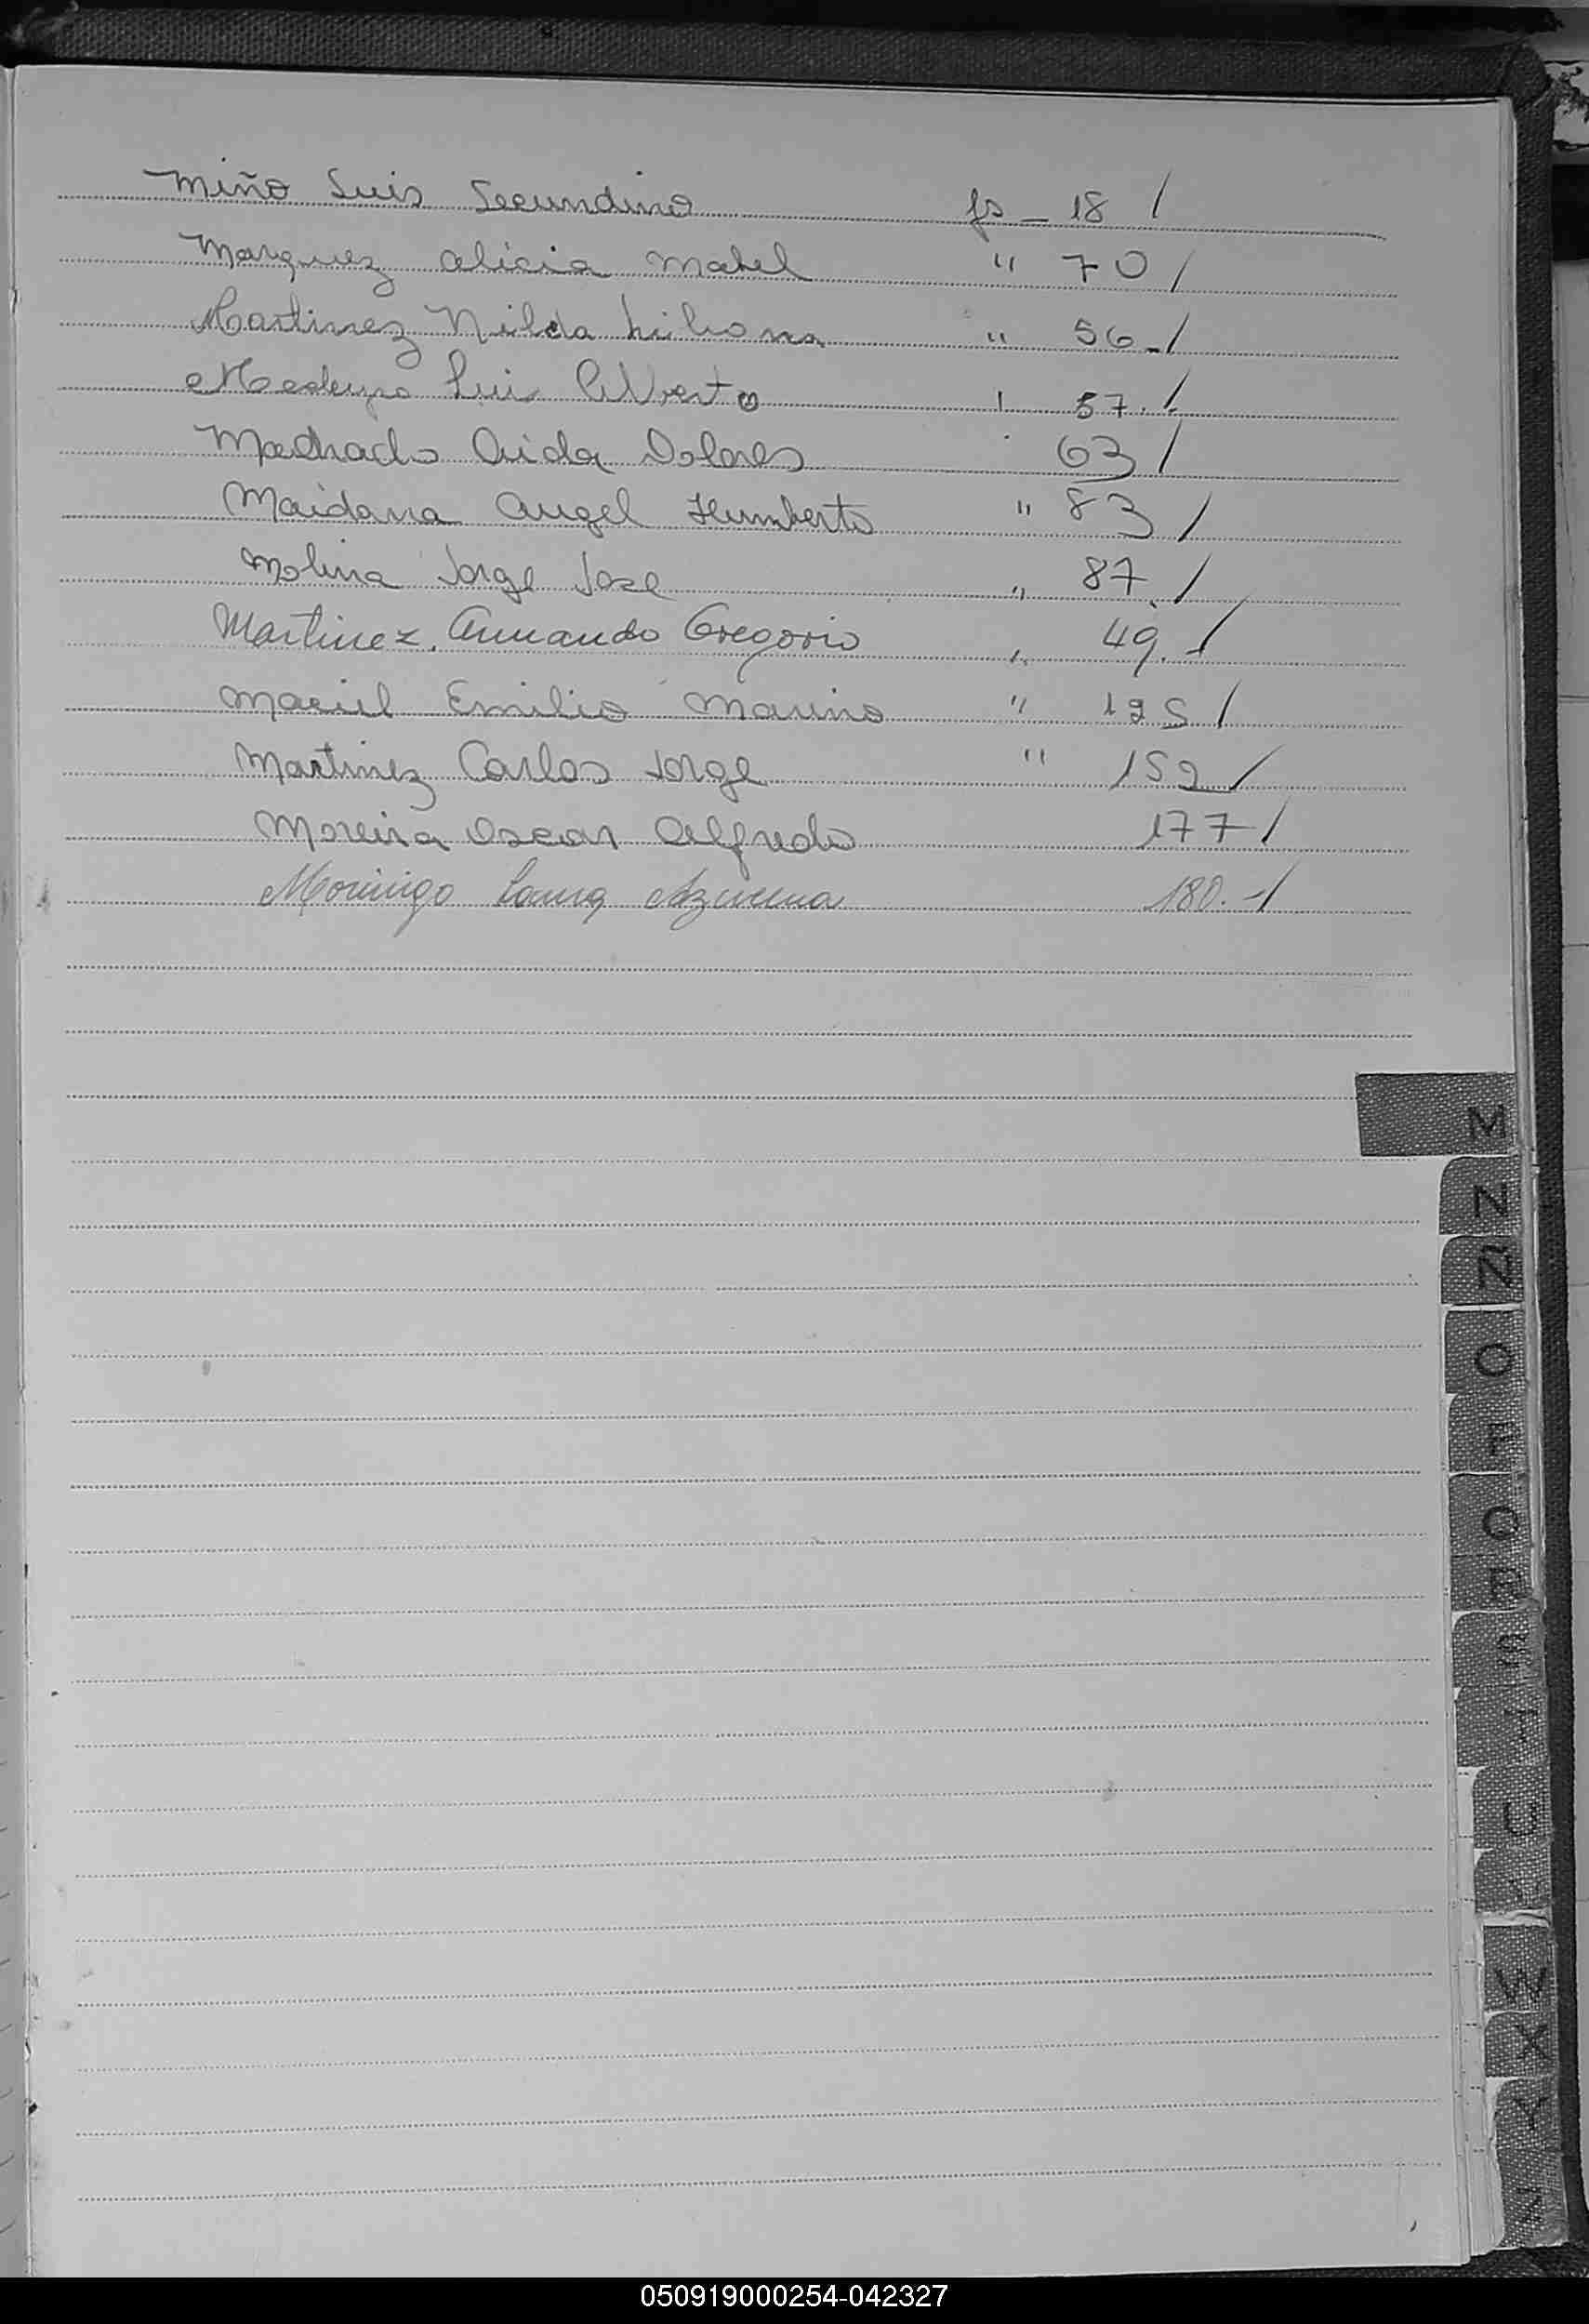 Miño Luis Secundino fs - 18 /
Marquez Alicia Mabel " 70 /
Martinez Nilda Liliana " 56 - /
Luis Alberto 57. /
Machado Aida Dolores 63 /
Maidana Angel Humberto " 83 /
Molina Jorge Jose " 87. /
Martinez, Armando Gregorio " 49. /
Maciel Emilio Marino " 125 /
Martinez Carlos Jorge " 152 /
Moreira Oscar Alfredo 177 /
Moringo Laura Azucena 180. - /
M
N
Ñ
O
Q
U
W
X
Y
Z
050919000254-042327